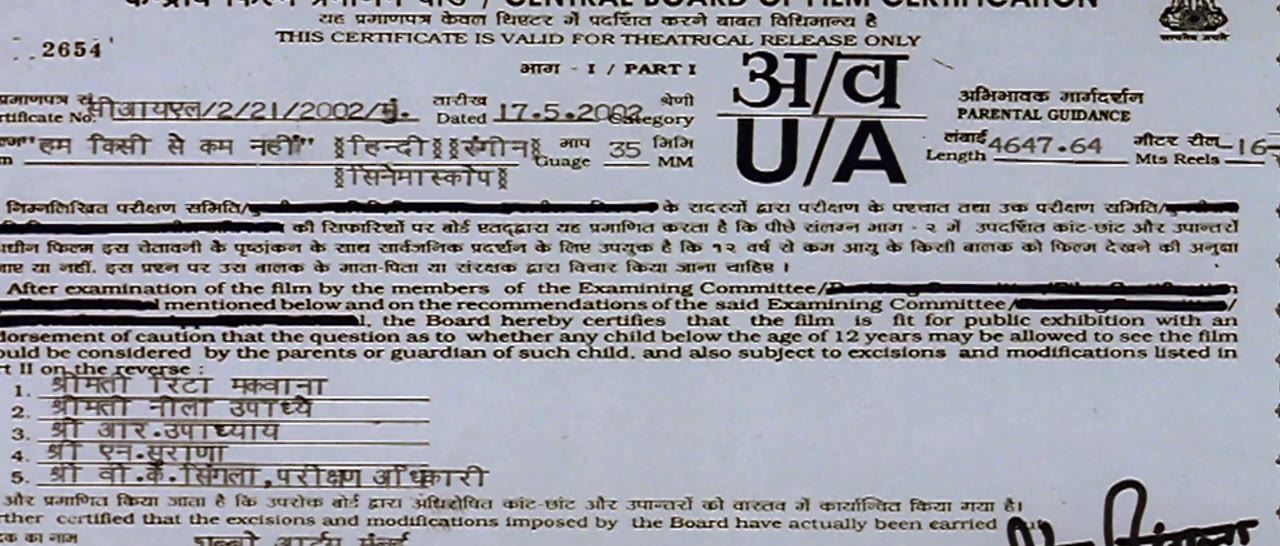 केन्द्रीय फिल्म प्रमाणन बोर्ड / CENTRAL BOARD OF FILM CERTIFICATION
यह प्रमाणपत्र केवल थिएटर में प्रदर्शित करने बाबत विधिमान्य है
THIS CERTIFICATE IS VALID FOR THEATRICAL RELEASE ONLY
2654
भाग - I / PART I
अ/व
U/A
प्रमाणपत्र सं. सीआयएल/2/21/2002/मुं. तारीख श्रेणी
rtificate No. Dated 17.5.2002 Category
अभिभावक मार्गदर्शन
PARENTAL GUIDANCE
"हम किसी से कम नहीं" हिन्दी रंगीन माप 35 मिमि
Guage MM
सिनेमास्कोप
लंबाई 4647.64 मीटर रील -16-
Length Mts Reels
निम्नलिखित परीक्षण समिति/ के सदस्यों द्वारा परीक्षण के पश्चात तथा उक्त परीक्षण समिति/
की सिफारिशों पर बोर्ड एतद्द्वारा यह प्रमाणित करता है कि पीछे संलग्न भाग - २ में उपदर्शित कांट-छांट और उपान्तरों
धीन फिल्म इस चेतावनी के पृष्ठांकन के साथ सार्वजनिक प्रदर्शन के लिए उपयुक्त है कि १२ वर्ष से कम आयु के किसी बालक को फिल्म देखने की अनुज्ञा
जाए या नहीं. इस प्रश्न पर उस बालक के माता-पिता या संरक्षक द्वारा विचार किया जाना चाहिए ।
After examination of the film by the members of the Examining Committee/
mentioned below and on the recommendations of the said Examining Committee/ /
, the Board hereby certifies that the film is fit for public exhibition with an
dorsement of caution that the question as to whether any child below the age of 12 years may be allowed to see the film
ould be considered by the parents or guardian of such child, and also subject to excisions and modifications listed in
rt II on the reverse :
1. श्रीमती रिटा मकवाना
2. श्रीमती नीला उपाध्ये
3. श्री आर.उपाध्याय
4. श्री एन.सुराणा
5. श्री वी.के.सिंगला,परीक्षण अधिकारी
और प्रमाणित किया जाता है कि उपरोक्त बोर्ड द्वारा अधिरोपित कांट-छांट और उपान्तरों को वास्तव में कार्यान्वित किया गया है।
rther certified that the excisions and modifications imposed by the Board have actually been carried
दक का नाम